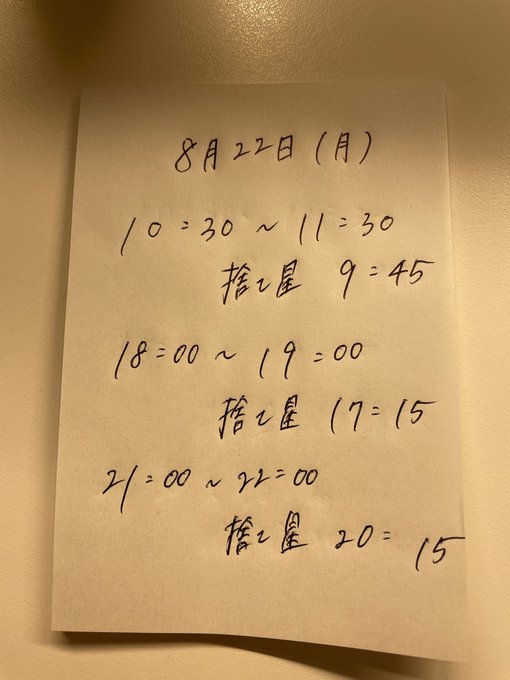 8月22日(月)
10:30~11:30
捨て星 9:45
18:00~19:00
捨て星 17:15
21:00~22:00
捨て星 20:15